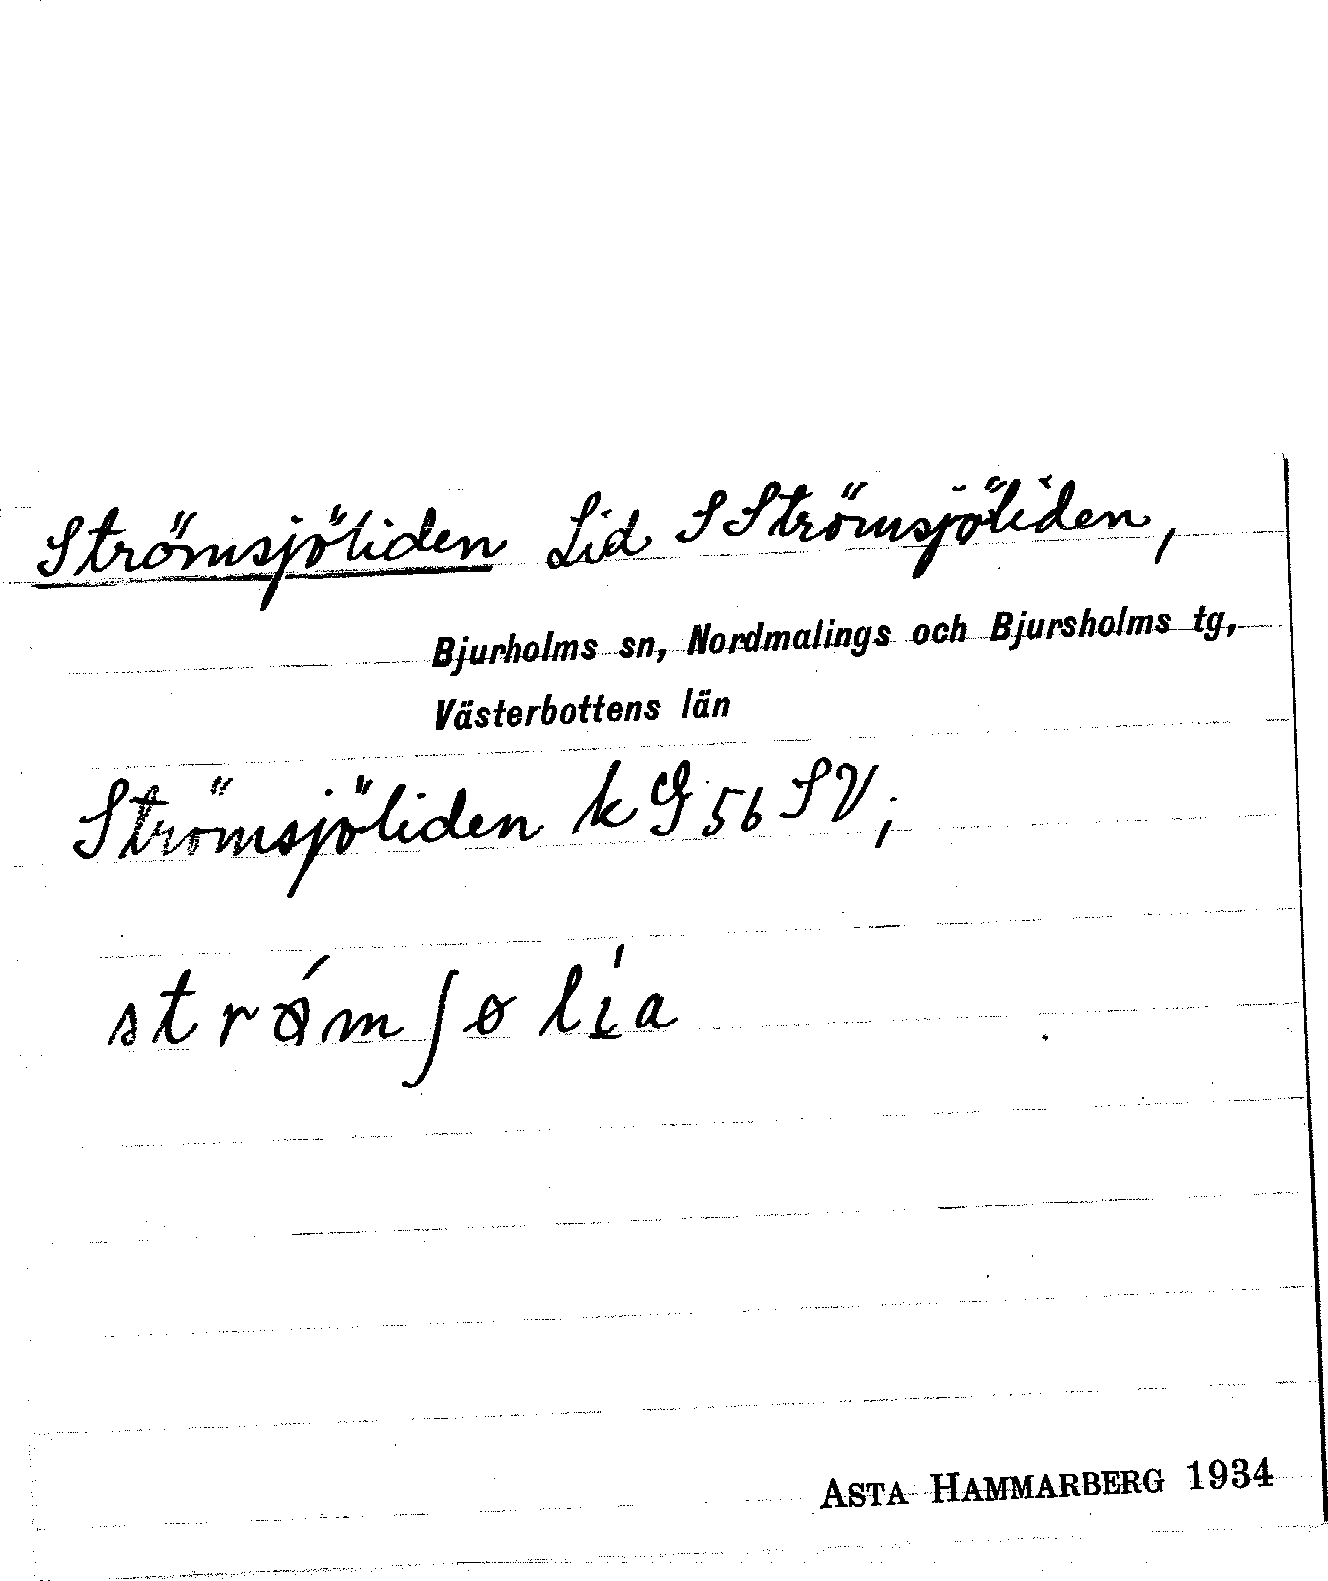 Strömsjöliden Lid S Strömsjöliden,
Bjurholms sn, Nordmalings och Bjursholms tg,
Västerbottens län
Strömsjöliden k G 56 SV;
strǿmʃø lı̍a
ASTA HAMMARBERG 1934